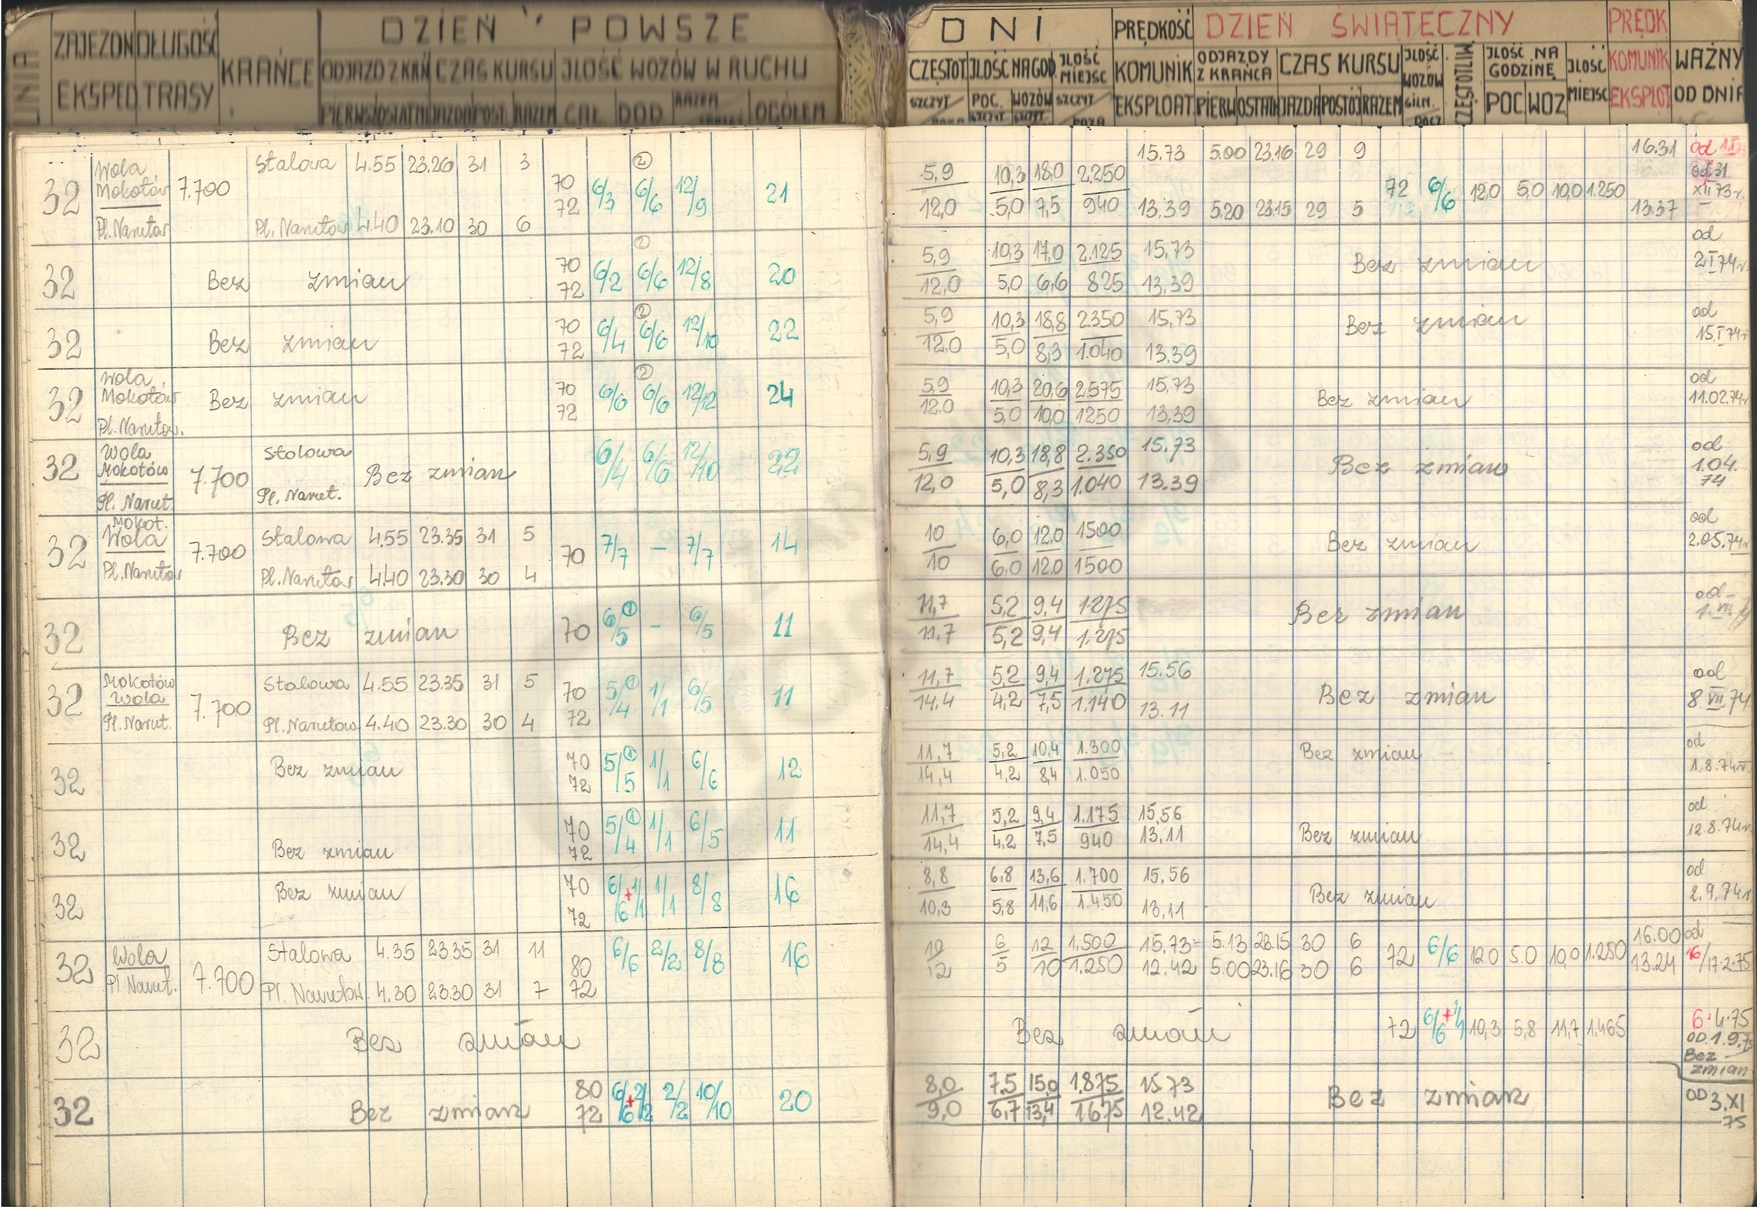 LINIA
ZAJEZDN. DŁUGOŚĆ KRAŃCE DZIEŃ POWSZE DNI PRĘDKOŚĆ DZIEŃ ŚWIĄTECZNY PRĘDK
EKSPED. TRASY ODJAZD Z KRAŃ CZAS KURSU ILOŚĆ WOZÓW W RUCHU CZĘSTOT ILOŚĆ NA GOD ILOŚĆ MIEJSC KOMUNIK ODJAZDY Z KRAŃCA CZAS KURSU ILOŚĆ WOZÓW CZĘSTOTLIW ILOŚĆ NA GODZINĘ ILOŚĆ MIEJSC KOMUNIK WAŻNY
PIERWSZ OSTATN JAZDA POST. RAZEM CAŁ DOD RAZEM OGÓŁEM SZCZYT POC. WOZÓW SZCZYT EKSPLOAT PIERW OSTATN JAZDA POSTÓJ RAZEM POC WOZ EKSPLOT OD DNIA
Wola Stalowa 4.55 23.20 31 3 ② 15.73 5.00 23.16 29 9 16.31
32 Mokotów 7.700 70 6/3 6/6 12/9 21 5,9 10,3 18,0 2.250 72 6/6 12,0 5,0 10,0 1.250 od 31
72 12,0 5,0 7,5 940 XII 73 r.
Pl. Narutow Pl. Narutow 4.40 23.10 30 6 13.39 5.20 23.15 29 5 13.37
32 Bez zmian 70 6/2 6/6 12/8 20 5,9 10,3 17,0 2.125 15,73 Bez zmian od
② 72 12,0 5,0 6,6 825 13,39 2 I 74 r.
32 Bez zmian 70 6/4 6/6 12/10 22 5,9 10,3 18,8 2.350 15,73 Bez zmian od
② 72 12,0 5,0 8,3 1.040 13,39 15. I 74 r
Wola
32 Mokotów Bez zmian 70 6/6 6/6 12/12 24 5,9 10,3 20,6 2.575 15,73 Bez zmian od
Pl. Narutow. ② 72 12,0 5,0 10,0 1250 13,39 11.02.74 r
Wola Stalowa
32 Mokotów 7.700 Bez zmian 6/4 6/6 12/10 22 5,9 10,3 18,8 2.350 15,73 Bez zmian od
Pl. Narut. Pl. Narut. 12,0 5,0 8,3 1.040 13.39 1.04. 74
Mokot.
32 Wola 7.700 Stalowa 4,55 23.35 31 5 70 7/7 – 7/7 14 10 6,0 12,0 1500 Bez zmian od
Pl. Narutow Pl. Narutow 4.40 23.30 30 4 10 6,0 12,0 1500 2.05.74 r
32 Bez zmian 70 6/5 ① – 6/5 11 11,7 5,2 9,4 1.275 Bez zmian od
11,7 5,2 9,4 1.275
Mokotów Stalowa 4.55 23.35 31 5 70 5/4 ① 1/1 6/5 11 11,7 5,2 9,4 1.275 15.56 od
32 Wola 7.700 Bez zmian
Pl. Narut. Pl. Narutow 4.40 23.30 30 4 72 14,4 4,2 7,5 1.140 13.11 8 VII 74
32 Bez zmian 70 5/5 ① 1/1 6/6 12 11,7 5,2 10,4 1.300 Bez zmian od
72 14,4 4,2 8,4 1.050 1.8.74 r.
32 Bez zmian 70 5/4 ① 1/1 6/5 11 11,7 5,2 9,4 1.175 15,56 Bez zmian od
72 14,4 4,2 7,5 940 13.11 12.8.74 r.
32 Bez zmian 70 6/6 + 1/1 1/1 8/8 16 8,8 6,8 13,6 1.700 15,56 Bez zmian od
72 10,3 5,8 11,6 1.450 13,11 2.9.74 r
32 Wola Stalowa 4.35 23.35 31 11 80 6/6 2/2 8/8 16 10 6 12 1.500 15.73 5.13 23.15 30 6 72 6/6 12,0 5.0 10,0 1.250 16.00 od
Pl Narut. 7.700 Pl. Narutow 4.30 23.30 31 7 72 12 5 10 1.250 12.42 5.00 23.16 30 6 13.24 16/17.2.75
32 Bez zmian Bez zmian 72 6/6 + 1/1 10,3 5,8 11,7 1.465 6.4.75
OD.1.9.75
Bez zmian
32 Bez zmian 80 6/6 + 2/2 2/2 10/10 20 8,0 7,5 15,0 1.875 15.73 Bez zmian OD 3.XI
72 9,0 6,7 13,4 1675 12.42 75